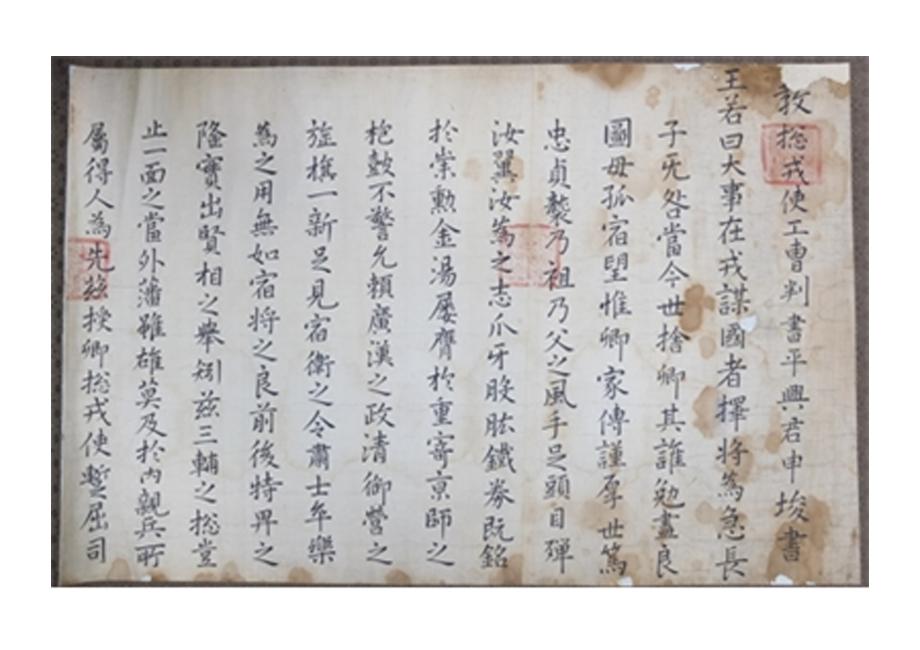 敎摠戎使工曹判書平興君申埈書
王若曰大事在戎謀國者擇將為急長
子旡咎當今世捨卿其誰勉盡良
圖毋孤宿望惟卿家傳謹厚世篤
忠貞襲乃祖乃父之風手足頭目殫
汝翼汝為之志爪牙股肱鐵券旣銘
於崇勳金湯屢膺於重寄京師之
枹鼓不警允賴廣漢之政清御營之
旌旗一新足見宿衛之令肅士卒樂
為之用無如宿將之良前後特畀之
隆實出賢相之擧矧玆三輔之摠豈
止一面之當外藩雖雄莫及於內親兵所
屬得人為先玆授卿摠戎使暫屈司